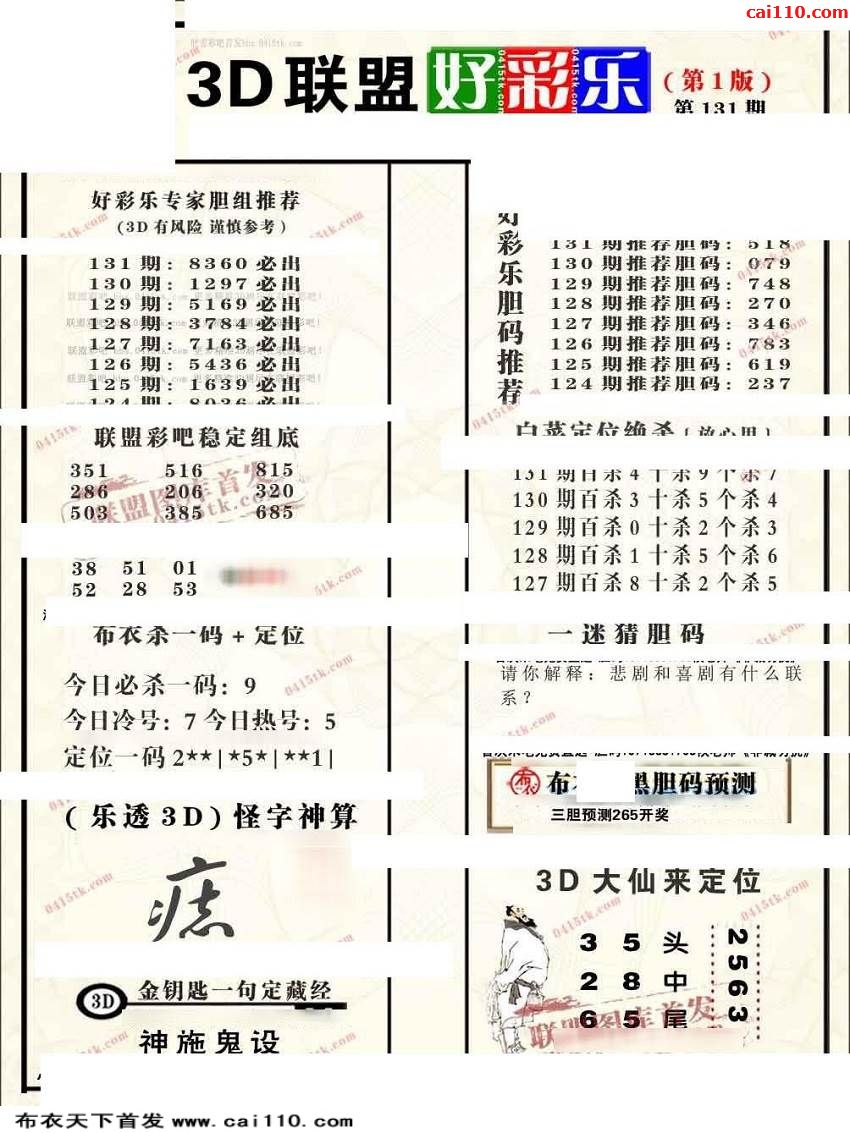 cai110.com
3D联盟好彩乐(第1版)
第131期
好彩乐专家胆组推荐
(3D有风险 谨慎参考)
131期: 8360必出
130期: 1297必出
129期: 5169必出
128期: 3784必出
127期: 7163必出
126期: 5436必出
125期: 1639必出
124期: 8036必出
联盟彩吧稳定组底
351 516 815
286 206 320
503 385 685
38 51 01
52 28 53
布衣杀一码+定位
今日必杀一码: 9
今日冷号: 7 今日热号: 5
定位一码 2**|*5*|**1|
(乐透3D)怪字神算
痣
3D 金钥匙一句定藏经
神施鬼设
好彩乐胆码推荐
131期推荐胆码: 518
130期推荐胆码: 079
129期推荐胆码: 748
128期推荐胆码: 270
127期推荐胆码: 346
126期推荐胆码: 783
125期推荐胆码: 619
124期推荐胆码: 237
白菜定位绝杀[放心用]
131期百杀4十杀9个杀7
130期百杀3十杀5个杀4
129期百杀0十杀2个杀3
128期百杀1十杀5个杀6
127期百杀8十杀2个杀5
一迷猜胆码
请你解释: 悲剧和喜剧有什么联
系?
布衣 黑胆码预测
三胆预测265开奖
3D大仙来定位
3 5 头
2 8 中
6 5 尾
2563
联盟图库首发
0415tk.com
布衣天下首发 www.cai110.com